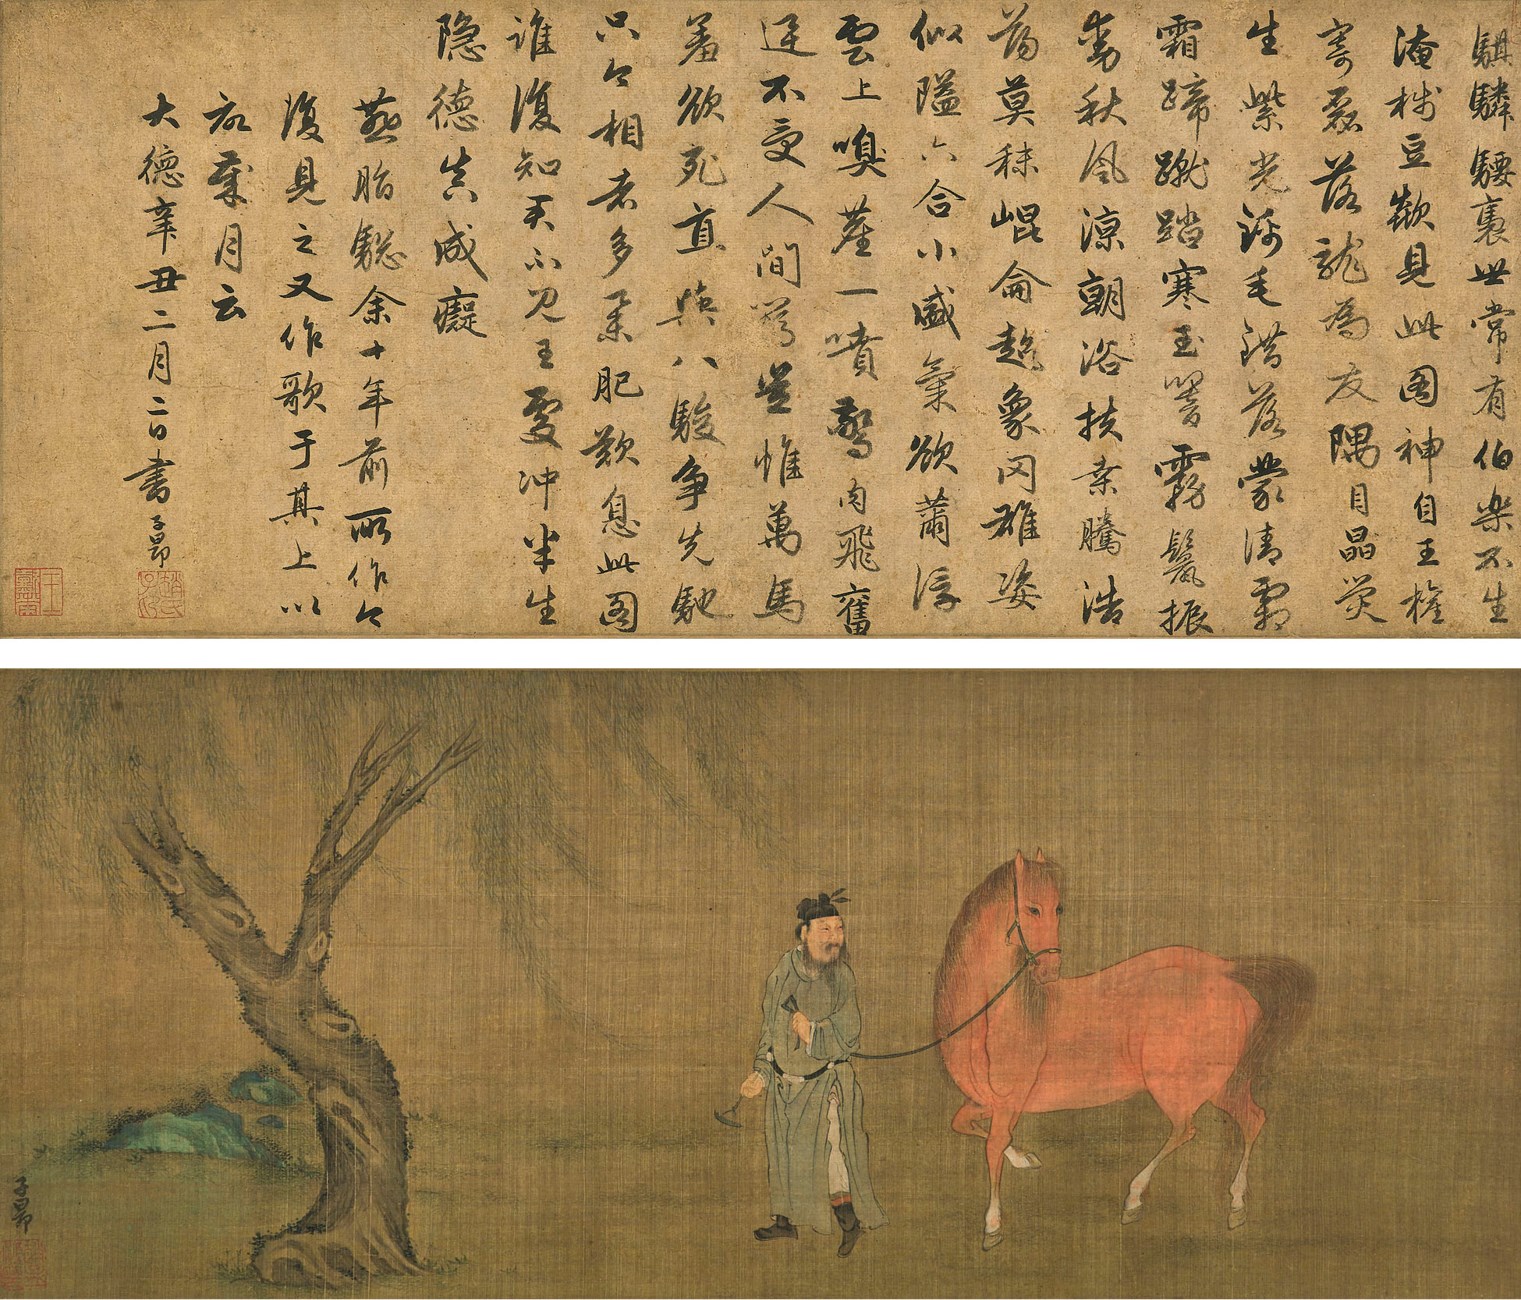 騏驎騕褭世常有伯樂不生
淹櫪豆歘見此圖神自王權
奇磊落龍為友隅目晶熒
生紫光銖毛錯落蒙清霜
霜蹄蹴踏寒玉響霧鬣振
動秋風涼朝浴扶桑騰浩
蕩莫秣崐崙超象罔雄姿
似隘六合小盛氣欲蕭浮
雲上嗅塵一噴驚肉飛奮
迅不受人間羈豈惟萬馬
羞欲死直與八駿爭先馳
只今相者多舉肥歎息此圖
誰復知天不見王處沖半生
隱德真成癡
燕脂驄余十年前所作今
復見之又作歌于其上以
歲月云
大德辛丑二月二日書子昂
子昂